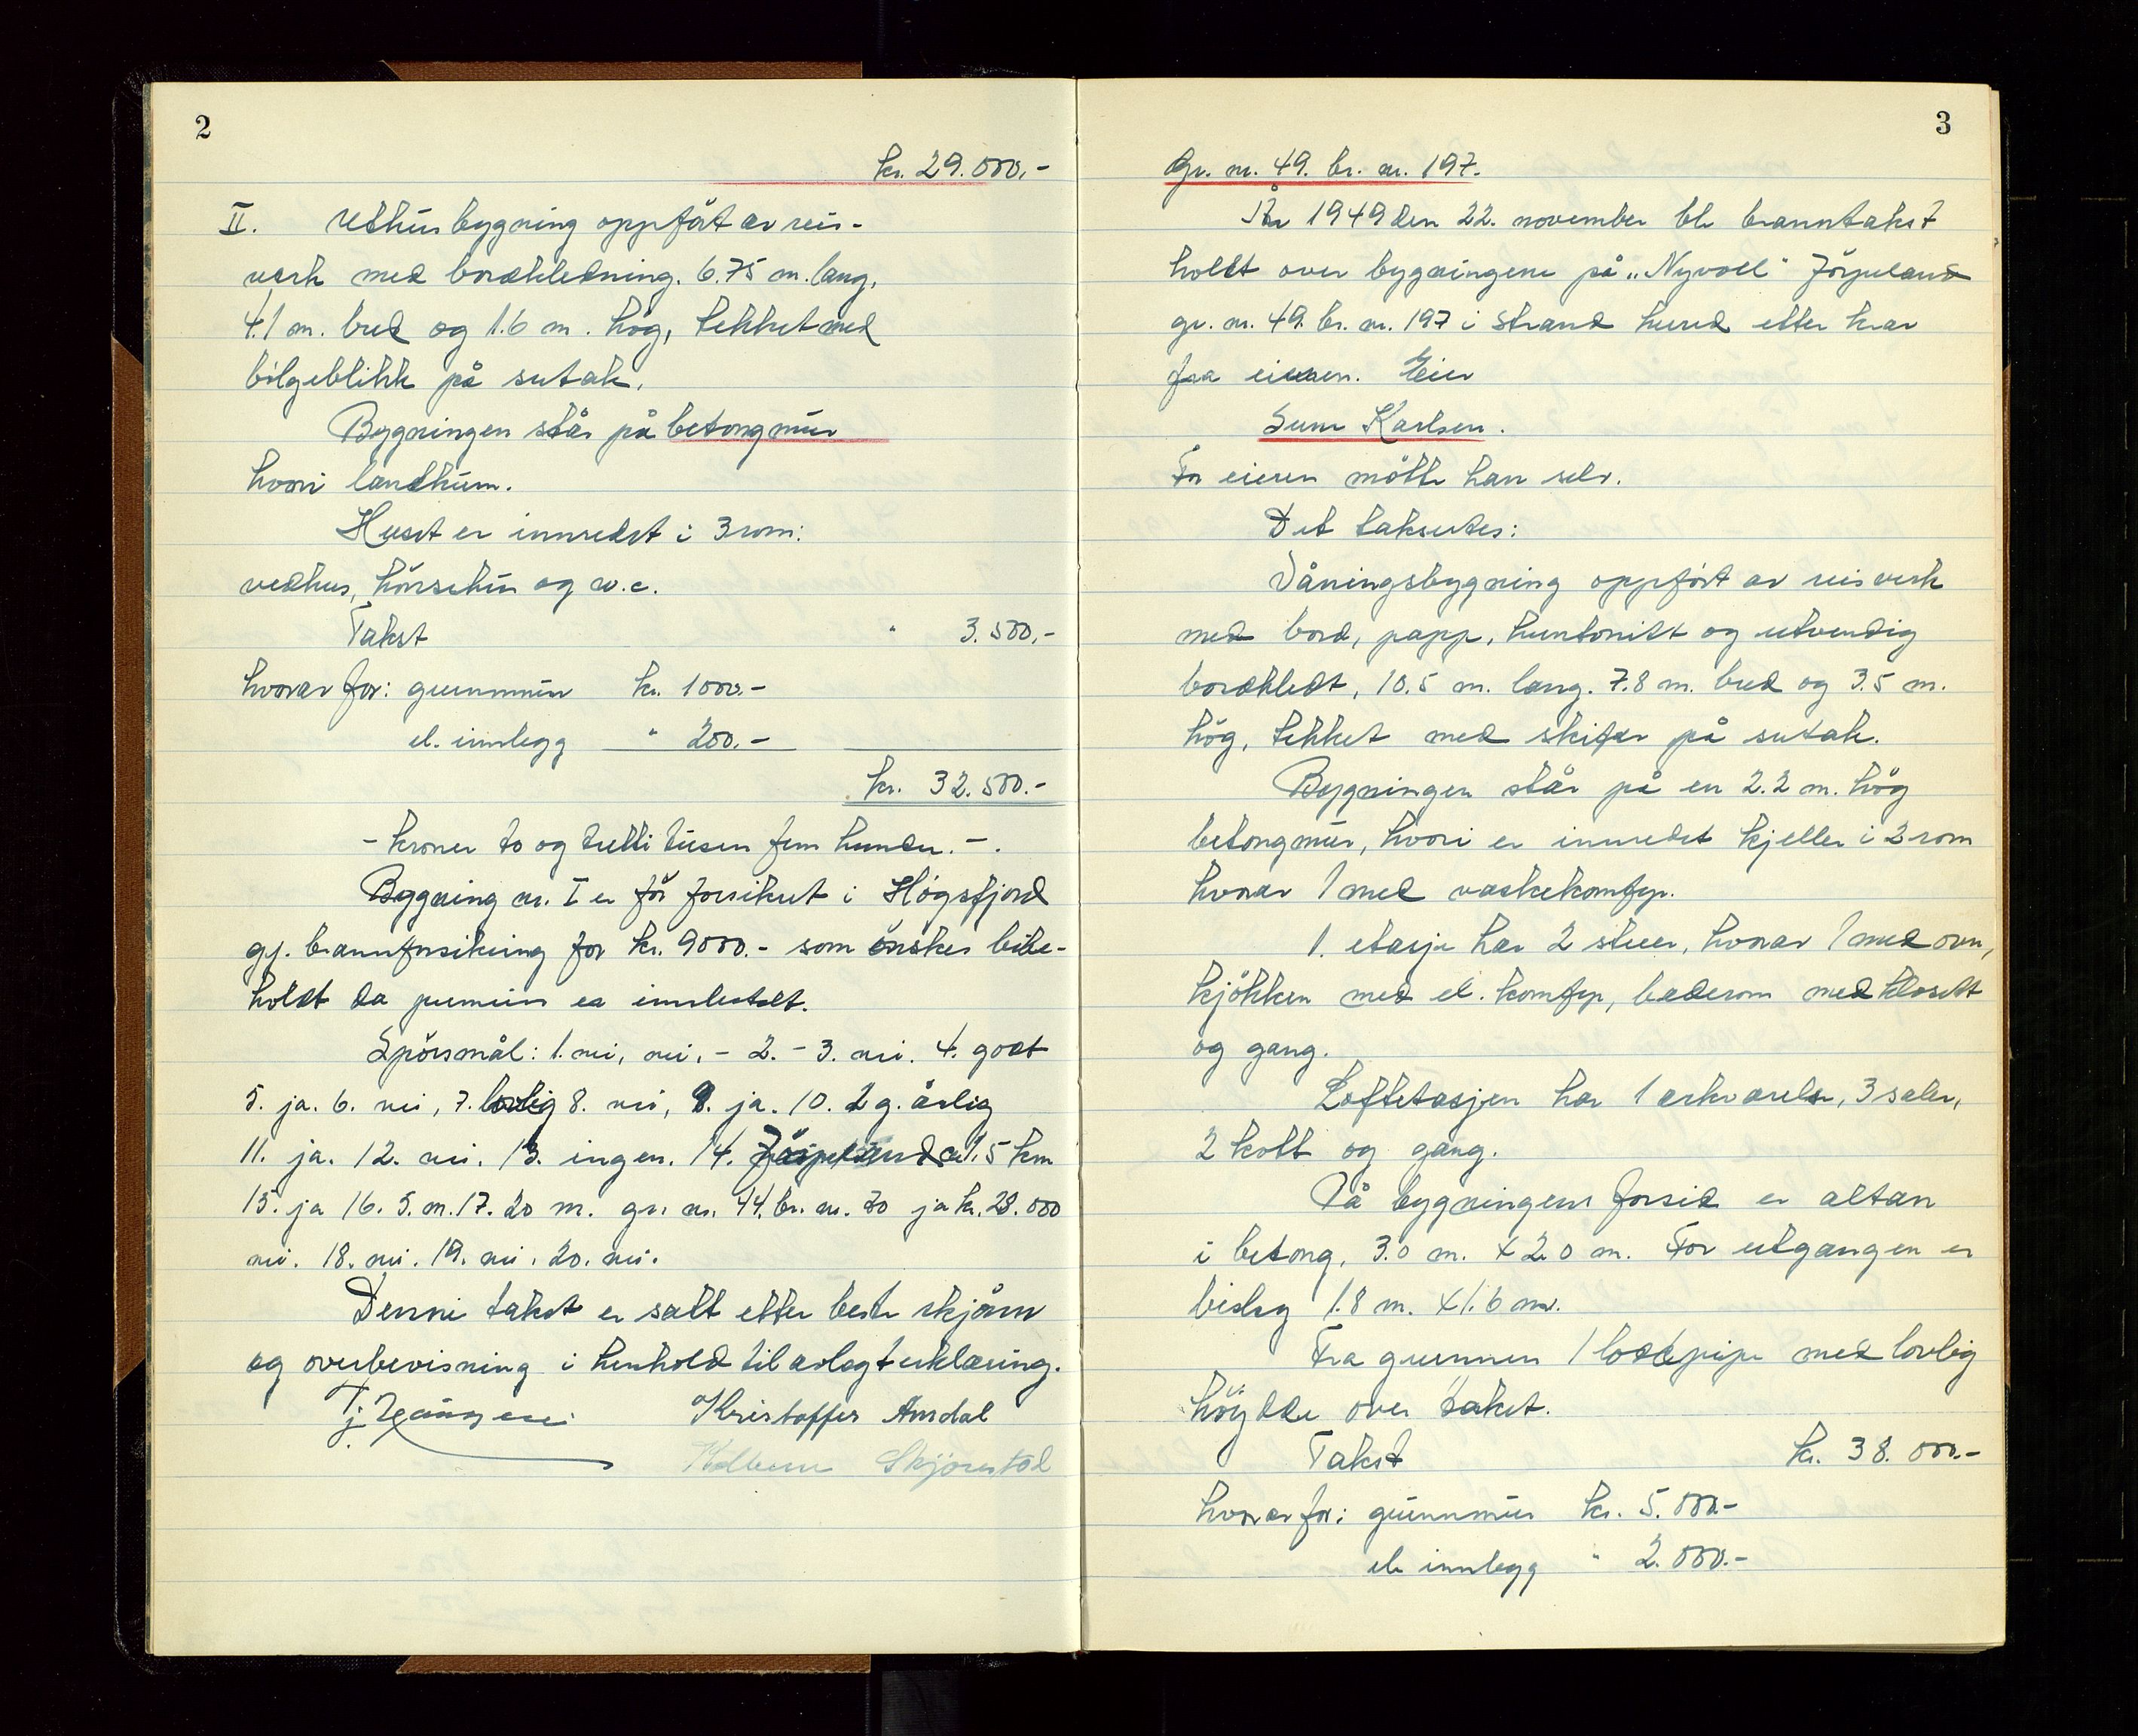 2
kr. 29.000,-
II. Uthusbygning oppfört av reis-
verk med bordkledning. 6.75 m. lang,
4.1 m. bred og 1.6 m. hög, tekket med
bölgeblikk på sutak.
Bygningen står på betongmur
hvori landkum.
Huset er innredet i 3 rom:
vedhus, hönsehus og w.c.
Takst " 3.500,-
hvorav for: grunnmur kr. 1000.-
el. innlegg " 200.-
kr. 32.500.-
- kroner to og tretti tusen fem hundre. -.
Bygning nr. I er för forsikret i Högsfjord
gj. brannforsikring for kr. 9000.- som önskes bibe-
holdt da premien er innbetalt.
Spörsmål: 1. nei, nei, - 2. - 3. nei. 4. godt
5. ja. 6. nei, 7. lovlig 8. nei, 9. ja. 10. 2 g. årlig
11. ja. 12. nei. 13. ingen. 14. Jörpeland ca 1.5 km
15. ja 16. 5. m. 17. 20 m. gr. nr. 44. br. nr. 70 ja kr. 28.000
nei. 18. nei. 19. nei. 20. nei.
Denne takst er satt etter beste skjönn
og overbevisning i henhold til avlagt erklæring.
Kristoffer Amdal
Skjörestad
3
Gr. nr. 49. br. nr. 197.
År 1949 den 22. november ble branntakst
holdt over bygningene på "Nyvoll" Jörpeland
gr. nr. 49. br. nr. 197 i Strand herred etter krav
fra eieren. Eier
Sune Karlsen.
For eieren mötte han selv.
Det takseres:
Våningsbygning oppfört av reisverk
med bord, papp, huntonitt og utvendig
bordkledt, 10.5 m. lang. 7.8 m. bred og 3.5 m.
hög, tekket med skifer på sutak.
Bygningen står på en 2.2 m. hög
betongmur, hvori er innredet kjeller i 2 rom
hvorav 1 med vaskekomfyr.
1. etasje har 2 stuer, hvorav 1 med ovn,
kjökken med el. komfyr, baderom med klosett
og gang.
Loftetasjen har 1 arkværelse, 3 saler,
2 kott og gang.
På bygningens forside er altan
i betong, 3.0 m. x 2.0 m. For utgangen er
bislag 1.8 m. x 1.6 m.
Fra grunnen 1 loddpipe med lovlig
höydde over taket.
Takst kr. 38.000.-
hvorav for: grunnmur kr. 5.000.-
el. innlegg " 2.000.-